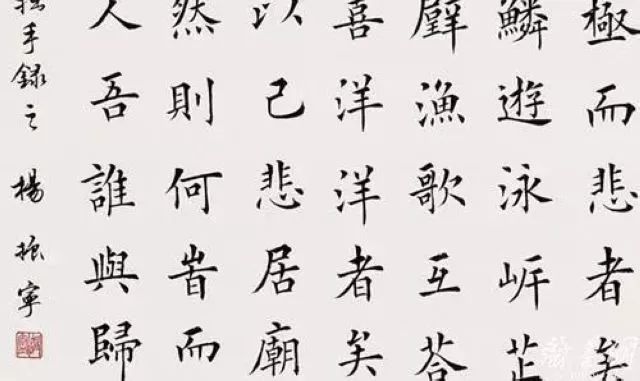 極而悲者矣
鱗遊泳岸芷
璧漁歌互荅
喜洋洋者矣
以己悲居廟
然則何旹而
人吾誰與歸
手録之 楊振寧